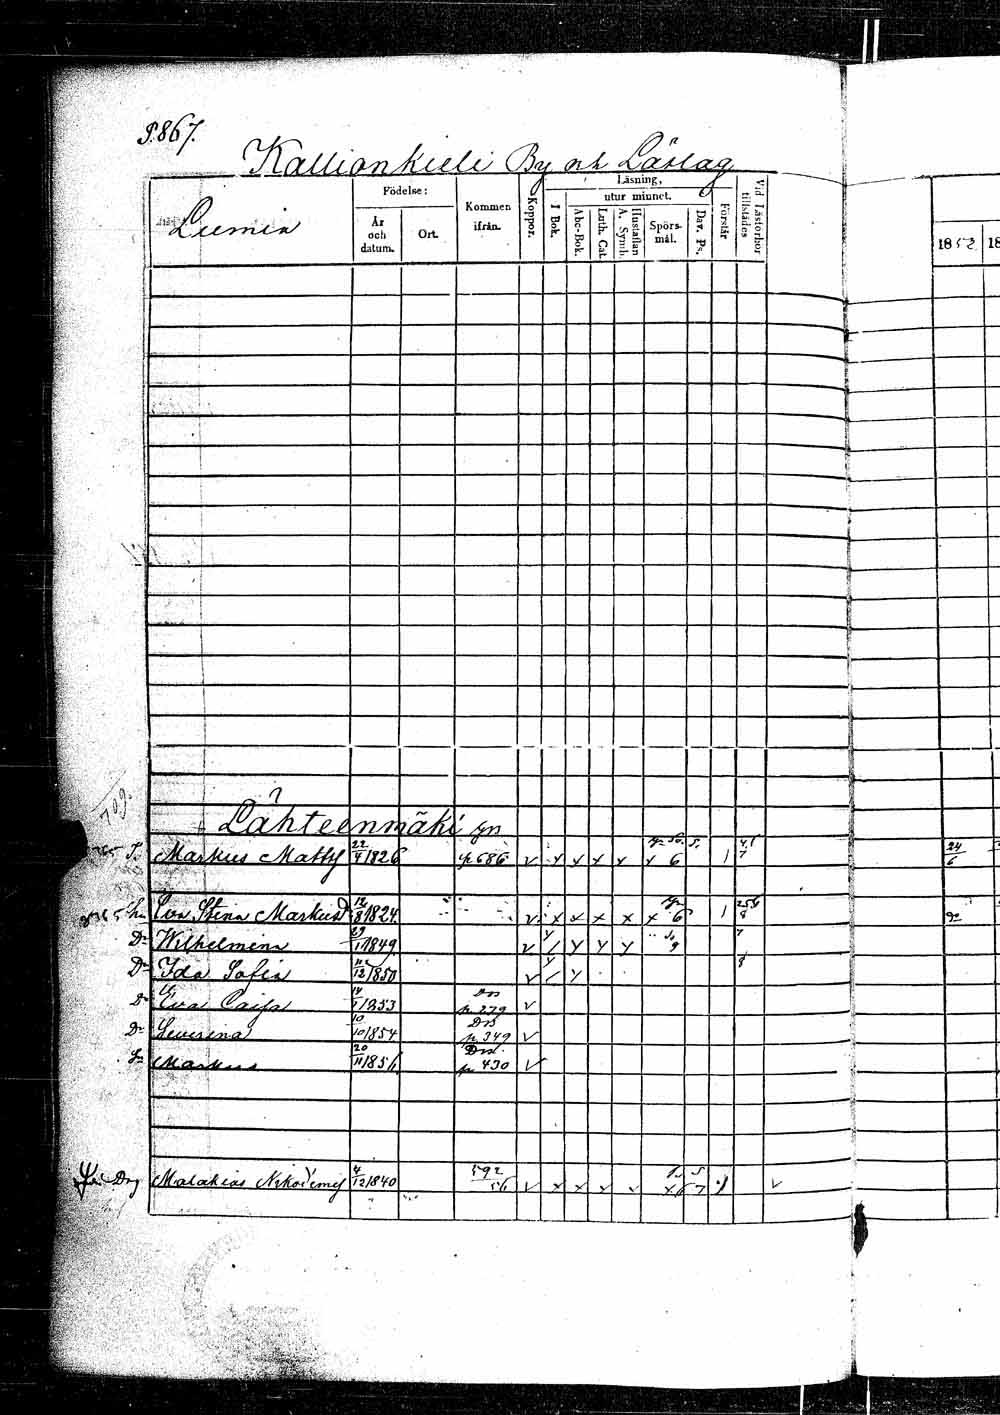 P. 867.
Kallionkieli By och Läslag
Lumia
Födelse:
År och datum.
Ort.
Kommen ifrån.
Koppor.
Läsning,
I Bok.
utur minnet.
Abc-Bok.
Luth. Cat.
Hustaflan A. Symb.
Spörsmål.
Dav. Ps.
Förstår
Vid Läsförhör tillstädes
1852
18
Lähteenmäki
Markus Mattsj 22/4 1826 p 686 v x x x x x 6 1 7 24/6
Eva Stina Markusd 12/8 1824 v x x x x x 6 1 8
Dr Wilhelmina 29/1 1849 v
Dr Ida Sofia 12/1850 v
Dr Eva Caisa 14/1 1853 p. 279 v
Dr Severina 10/10 1854 p. 349 v
Sn Markus 20/11 1856 p. 430 v
Drg Malakias Nikodemij 4/12 1840 592/56 v x x x v